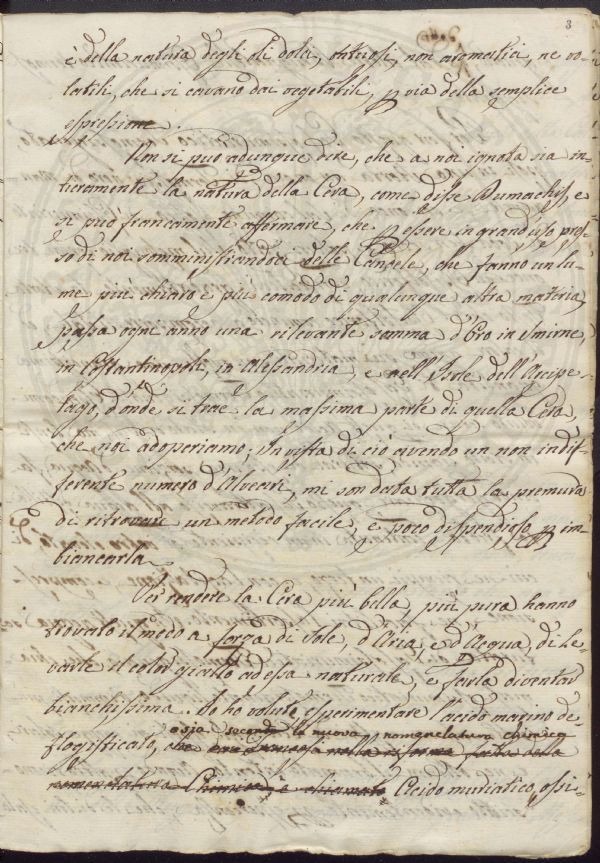 3
è della natura degli olj dolci, untuosi, non aromatici, ne vo-
latili, che si cavano dai vegetabili, p via della semplice
espressione.
Non si può adunque dire, che a noi ignota sia in-
tieramente la natura della Cera, come disse e
si può francamente affermare, che p essere in grand'uso pres-
so di noi somministrandoci delle Candele, che fanno un lu-
me più chiaro e più comodo di qualunque altra materia,
passa ogni anno una rilevante somma d'Oro in Smirne,
in Costantinopoli, in Alessandria, e nell'Isole dell'Arcipe-
lago, d'onde si trae la massima parte di quella Cera,
che noi adoperiamo; In vista di ciò avendo un non indif-
ferente numero d'Alveari, mi son data tutta la premura
di ritrovare un metodo facile, e poco dispendioso p im-
biancarla.
Per rendere la Cera più bella, più pura hanno
trovato il modo a forza di Sole, d'Aria, e d'Acqua, di le-
varle il color giallo ad essa naturale, e farla diventar
bianchissima. Io ho voluto esperimentare l'acido marino de-
ossia secondo la nuova nomenclatura chimica
flogisticato, che nella riforma fatta della
nomenclatura Chimica, è chiamato Acido muriatico, ossi-